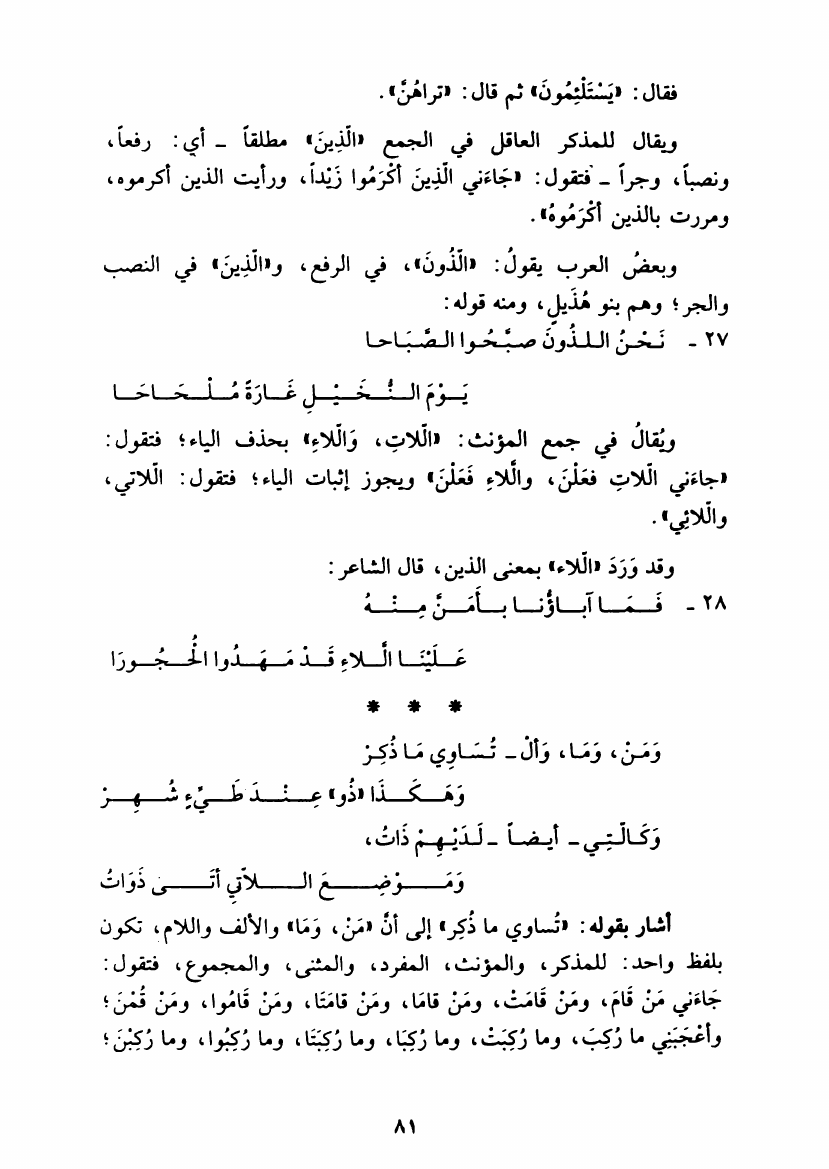 فقال: «يَسْتَلْئِمُونَ» ثم قال: «تراهُنَّ».
ويقال للمذكر العاقل في الجمع «الَّذِينَ» مطلقاً - أي: رفعاً،
ونصباً، وجراً - فتقول: «جَاءَني الَّذِينَ أكْرَمُوا زَيْداً، ورأيت الذين أكرموه،
ومررت بالذين أكْرَمُوهُ».
وبعضُ العرب يقولُ: «الَّذُونَ»، في الرفع، و«الَّذِينَ» في النصب
والجر؛ وهم بنو هُذَيلٍ، ومنه قوله:
٢٧ - نَحْنُ اللذُونَ صبَّحُوا الصَّبَاحا
يَوْمَ النُّخَيْلِ غَارَةً مُلْحَاحَا
ويُقالُ في جمع المؤنث: «الَّلاتِ، وَالَّلاءِ» بحذف الياء؛ فتقول:
«جاءَني الَّلاتِ فعَلْنَ، والَّلاءِ فَعَلْنَ» ويجوز إثبات الياء؛ فتقول: الَّلاتي،
والَّلائِي».
وقد وَرَدَ «الَّلاء» بمعنى الذين، قال الشاعر:
٢٨ - فَمَا آباؤُنا بأَمَنَّ مِنْهُ
عَلَيْنَا الَّلاءِ قَدْ مَهَدُوا الْحُجُورَا
* * *
وَمَنْ، وَمَا، وَألْ - تُسَاوِي مَا ذُكِرْ
وَهَكَذَا «ذُو» عِنْدَ طَيِّءٍ شُهِرْ
وَكَالَّتِي - أيضاً - لَدَيْهِمْ ذَاتُ،
وَمَوْضِعَ اللَّاتِي أتَى ذَوَاتُ
أشار بقوله: «تُساوي ما ذُكِر» إلى أنَّ «مَنْ، وَمَا» والألف واللام، تكون
بلفظ واحد: للمذكر، والمؤنث، المفرد، والمثنى، والمجموع، فتقول:
جَاءَني مَنْ قَامَ، ومَنْ قَامَتْ، ومَنْ قامَا، ومَنْ قامَتَا، ومَنْ قَامُوا، ومَنْ قُمْنَ؛
وأعْجَبَنِي ما رُكِبَ، وما رُكِبَتْ، وما رُكِبَا، وما رُكِبَتَا، وما رُكِبُوا، وما رُكِبْنَ؛
٨١